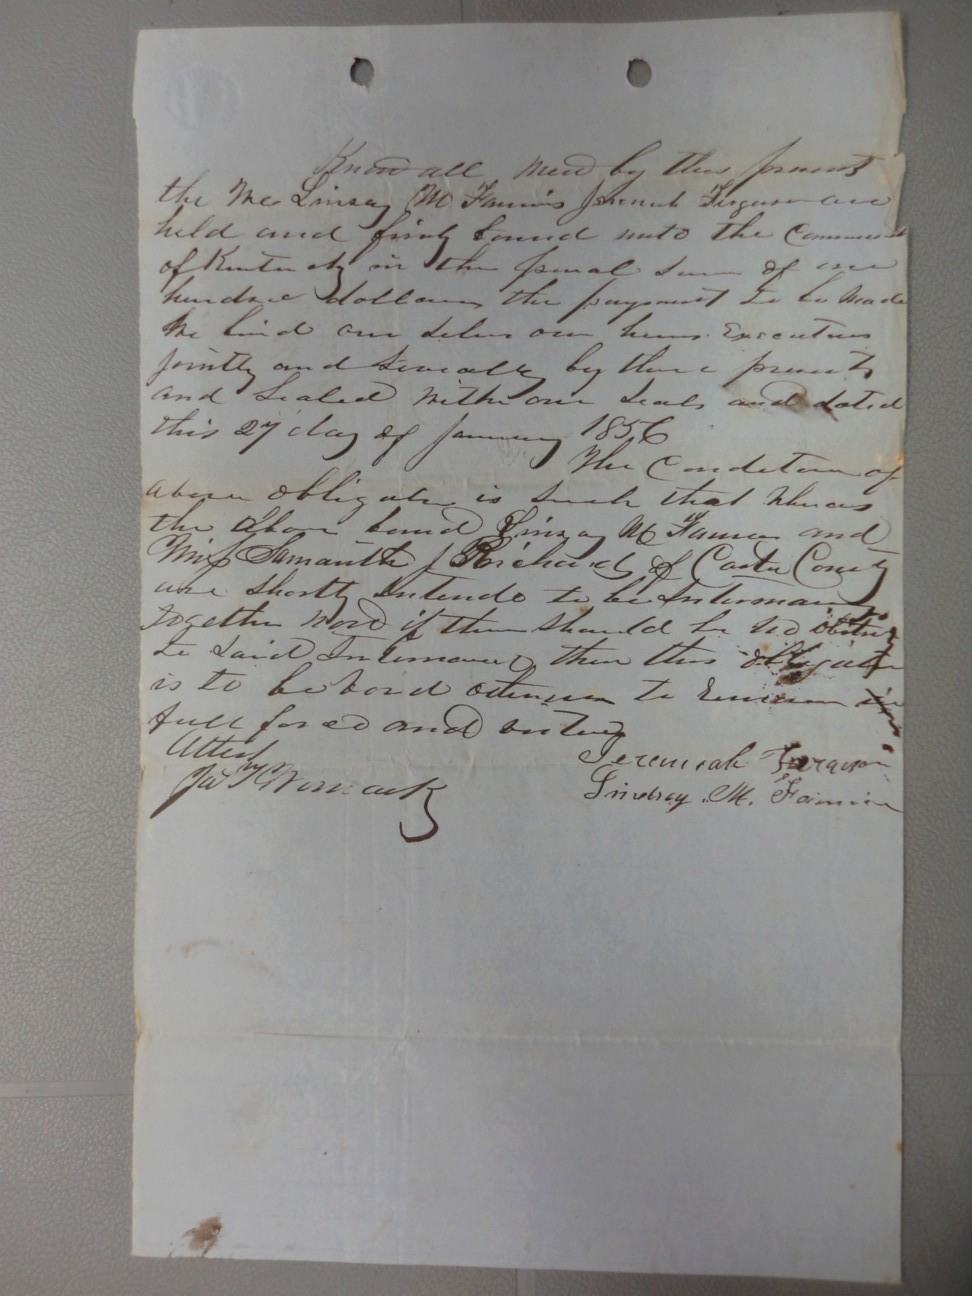 Know all Men by thes presents
the We Linsay M Fannin Jeremiah Ferguson are
held and firmly bound unto the Commonwe
of Kentucky in the penal sum of one
hundred dollars the payment to be made
We bind our selves our heirs Executors
Jointly and Severally by these presents
and Sealed With our Seals and dated
this 27 day of January 1856
The Condition of
above obligation is such that Whereas
the above bound Linzay M Fannin and
Miss Samantha J Richards of Carter County
are shortly Intende to be Intermarried
together Now if there should be no
to said Intermarriage then this obligation
is to be void otherwise to Remain in
full forced and virtue
Attest
Jas Womack
Jeremiah Ferguson
Lindsay M. Fannin